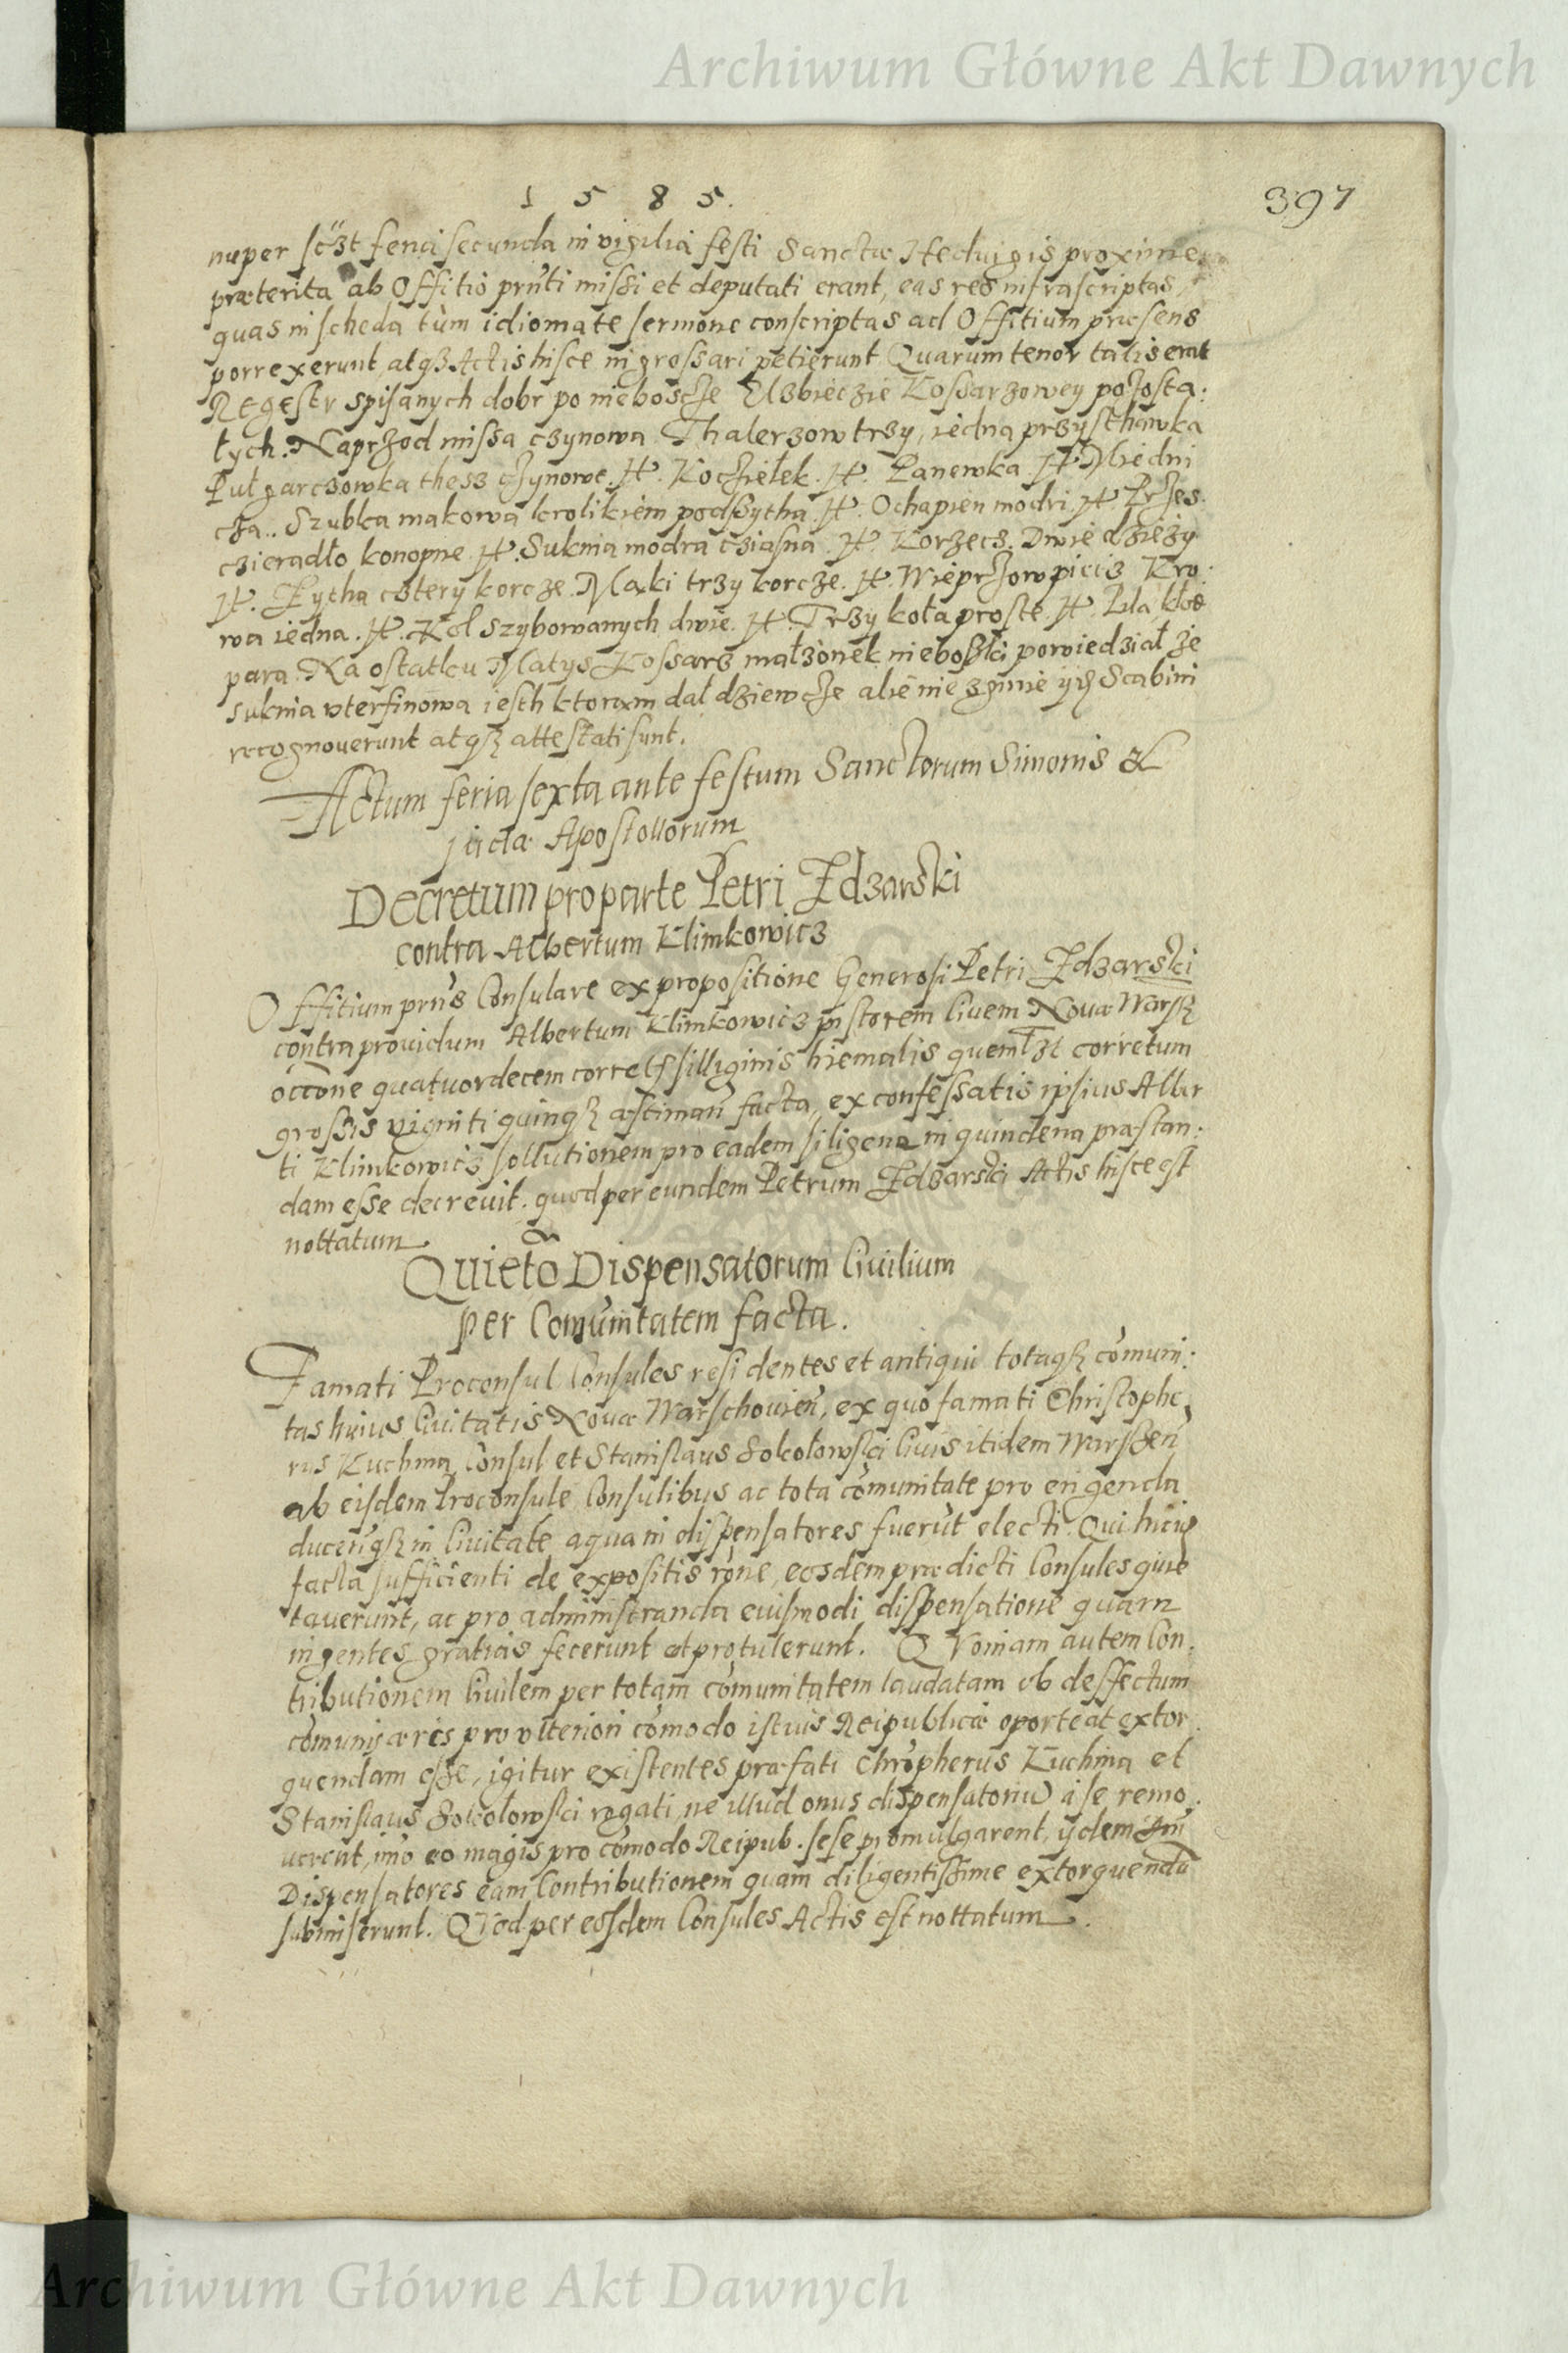 Archiwum Główne Akt Dawnych
1 5 8 5.
397
nuper sczt feria secunda in vigilia festi Sanctæ Hedvigis proxime
præterita ab Offitio prnti missi et deputati erant, eas res infrascriptas,
quas in scheda tum idiomate sermone conscriptas ad Offitium præsens
porrexerunt atqз Actis hisce ingrossari petierunt Quarum tenor talis erat
Regestr spisanych dobr po nieboscze Elzbieczie Kossarzowey pozosta:
łych. Naprzod missa czynowa Thalerzow trzy, iedna przysthawka
Pułgarczowka thesz czynowe. It. Kocziełek. It. Panewka It Miedni
cza.. Szubka makowa krolikiem podszytha It. Ochapien modri It Przes
czieradło konopne It. Suknia modra cziasna It. Korzecz. Dwie dzieży
It. Zytha cztery korcze. Mąki trzy korcze. It. Wieprzow piecz Kro:
wa iedna. It. Kol szybowanych dwie. It. Trzy koła proste It. Piła, kłoe
para. Na ostatku Matys Kossarz małżonek nieboszki powiedział że
suknia vterfinowa iesth ktoram dał dziewcze alie nie zginie yiз Scabini
recognoverunt atqз attestati sunt.
Actum feria sexta ante festum Sanctorum Simonis &
Judæ Apostollorum
Decretum pro parte Petri Zdzarski
contra Albertum Klimkowicz
Offitium prns Consulare ex propositione Generosi Petri Zdzarski
contra providum Albertum Klimkowicz pistorem Civem Novæ Warsз
occone quatuordecem corret silliginis hiemalis quemlзt corretum
grossis viginti quinqз æstiman facta, ex confessatis ipsius Alber
ti Klimkowicz sollutionem pro eadem siligena in quindena præstan:
dam esse decrevit. quod per eundem Petrum Zdzarski Actis hisce est
nottatum
Quieto Dispensatorum Civilium
per Comunitatem facta.
Famati Proconsul Consules residentes et antiqui totaqз comuni:
tas huius Civitatis Novæ Warschovien, ex quo famati Christophe
rus Kuchma Consul et Stanislaus Sokołowski Civis itidem Warschen
ab eisdem Proconsule Consulibus ac tota comunitate pro erigenda
ducenqз in Civitate aqua in dispensatores fuerut electi. Qui huius
facta sufficienti de expositis rone, eosdem prædicti Consules quie
taverunt, ac pro administranda eiusmodi dispensatione quam
ingentes gratias fecerunt et protulerunt. QVoniam autem Con:
tributionem Civilem per totam comunitatem laudatam ob deffectum
comunis æris pro vlteriori comodo istius Reipublicæ oporteat extor
quendam esse, igitur existentes præfati Chropherus Kuchma et
Stanislaus Sokołowski rogati, ne illud onus dispensatoriu a se remo:
verent, imo eo magis pro comodo Reipub. sese promulgarent, ydem
Dispensatores eam Contributionem quam diligentissime extorquenda
submiserunt. QVod per eosdem Consules Actis est nottatum.
Archiwum Główne Akt Dawnych